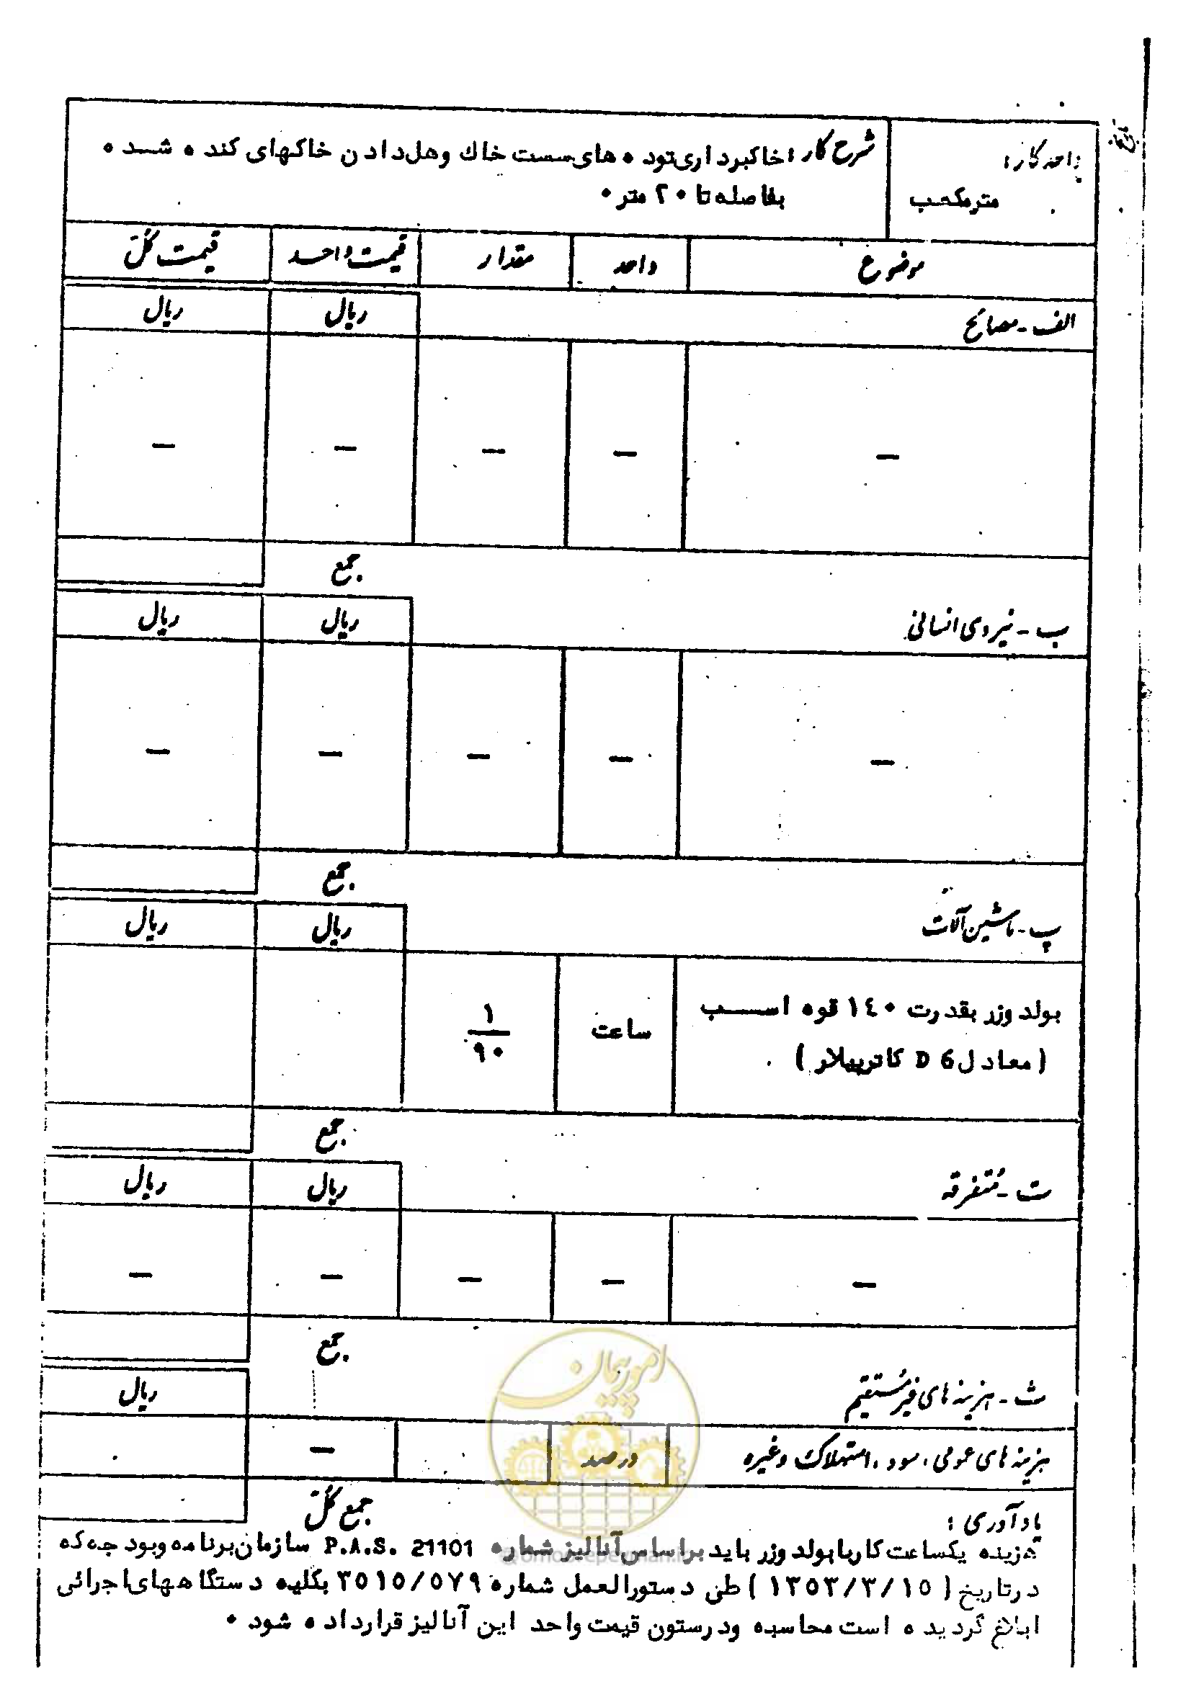 واحد کار :
مترمکعب
شرح کار : خاکبرداری توده های سست خاك وهل دادن خاکهای کنده شده
بفاصله تا ۲۰ متر ۰
موضوع واحد مقدار قیمت واحد قیمت کل
الف - مصالح ریال ریال
— — — — —
جمع
ب - نیروی انسانی ریال ریال
— — — — —
جمع
پ - ماشین آلات ریال ریال
بولدوزر بقدرت ۱٤۰ قوه اسب ساعت ۱/۹۰
( معادل D 6 کاترپیلار ) .
جمع
ت - متفرقه ریال ریال
— — — — —
جمع
ث - هزینه های غیرمستقیم ریال
هزینه های عمومی ، سود ، استهلاک وغیره درصد —
جمع کل
یادآوری :
هزینه یکساعت کاربابولدوزر باید براساس آنالیز شماره P.A.S. 21101 سازمان برنامه وبودجه که
درتاریخ ( ۱۳۵۳/۳/۱۵ ) طی دستورالعمل شماره ۳۵۱۵/۵۷۹ بکلیه دستگاههای اجرائی
ابلاغ گردیده است محاسبه ودرستون قیمت واحد این آنالیز قرارداده شود ۰
امور پیمان